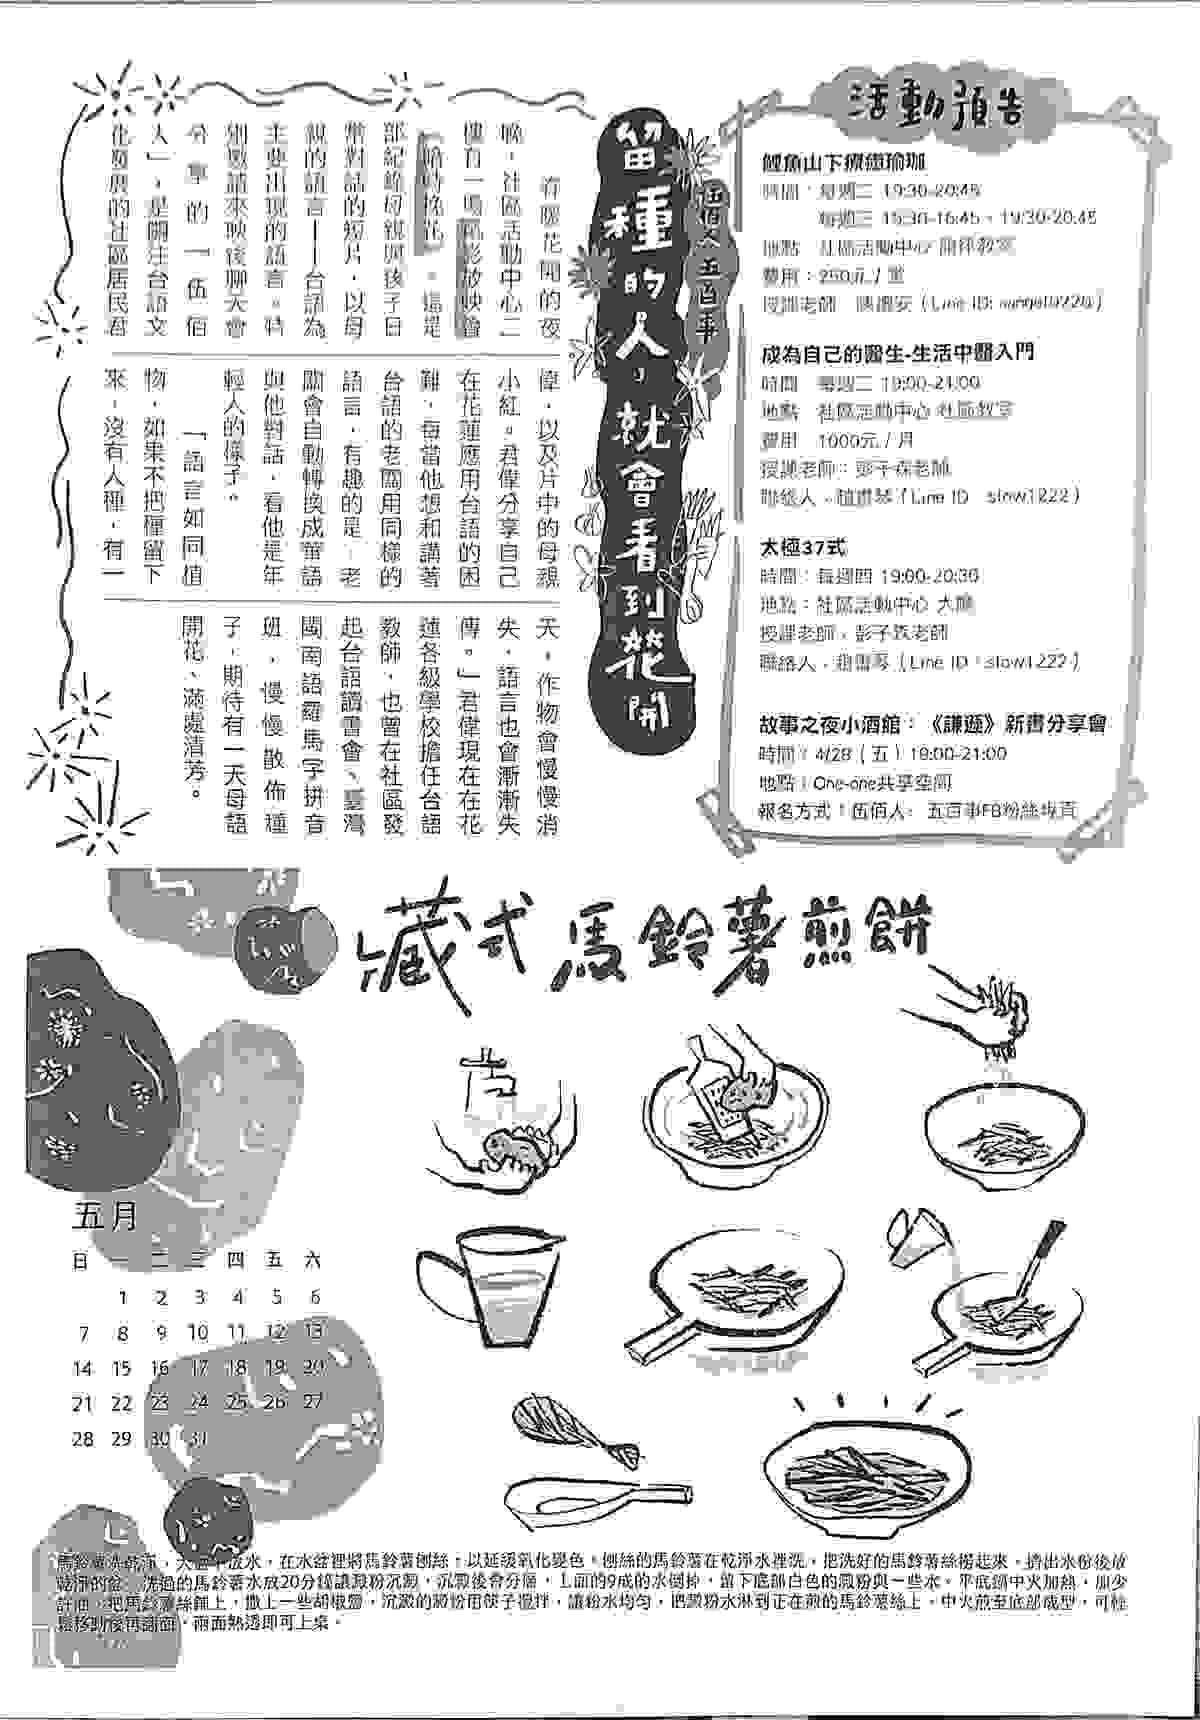 活動預告
鯉魚山下療癒瑜珈
時間：每週二 19:30-20:45
每週三 15:30-16:45、19:30-20:45
地點：社區活動中心
費用：250元 / 堂
授課老師
成為自己的醫生-生活中醫入門
時間：每週二 19:00-21:00
地點：社區活動中心 社區教室
費用：1000元 / 月
授課老師：
聯絡人：趙書琴（Line ID：slow1222）
太極37式
時間：每週四 19:00-20:30
地點：社區活動中心 大廳
授課老師：彭子
聯絡人：趙書琴（Line ID：slow1222）
故事之夜小酒館：《謙遜》新書分享會
時間：4/28（五）19:00-21:00
地點：One-one共享空間
報名方式：伍佰人．五百事FB粉絲專頁
伍佰人五百事
留種的人，就會看到花開
花開的夜
晚，社區活動中心二
樓有一場電影放映會
這是
部紀錄母親與孩子日
常對話的短片，以母
親的語言——台語為
主要出現的語言。特
別邀請來映後聊天會
分享的「伍佰
人」，是關注台語文
化發展的社區居民君
偉，以及片中的母親
小紅。君偉分享自己
在花蓮應用台語的困
難，每當他想和講著
台語的老闆用同樣的
語言，有趣的是，老
闆會自動轉換成華語
與他對話，看他是年
輕人的樣子。
「語言如同植
物，如果不把種留下
來，沒有人種，有一
天，作物會慢慢消
失，語言也會漸漸失
傳。」君偉現在在花
蓮各級學校擔任台語
教師，也曾在社區發
起台語讀書會、臺灣
閩南語羅馬字拼音
班，慢慢散佈種
子，期待有一天母語
開花、滿處清芳。
藏式馬鈴薯煎餅
五月
日 一 二 三 四 五 六
1 2 3 4 5 6
7 8 9 10 11 12 13
14 15 16 17 18 19 20
21 22 23 24 25 26 27
28 29 30 31
馬鈴薯洗乾淨，大盆中放水，在水盆裡將馬鈴薯刨絲，以延緩氧化變色。刨絲的馬鈴薯在乾淨水裡洗，把洗好的馬鈴薯絲撈起來，擠出水份後放
乾淨的盆。洗過的馬鈴薯水放20分鐘讓澱粉沉澱，沉澱後會分層，上面的9成的水倒掉，留下底部白色的澱粉與一些水。平底鍋中火加熱，加少
許油，把馬鈴薯絲鋪上，撒上一些胡椒鹽，沉澱的澱粉用筷子攪拌，讓粉水均勻，把澱粉水淋到正在煎的馬鈴薯絲上，中火煎至底部成型，可輕
鬆移動後再翻面，兩面熟透即可上桌。